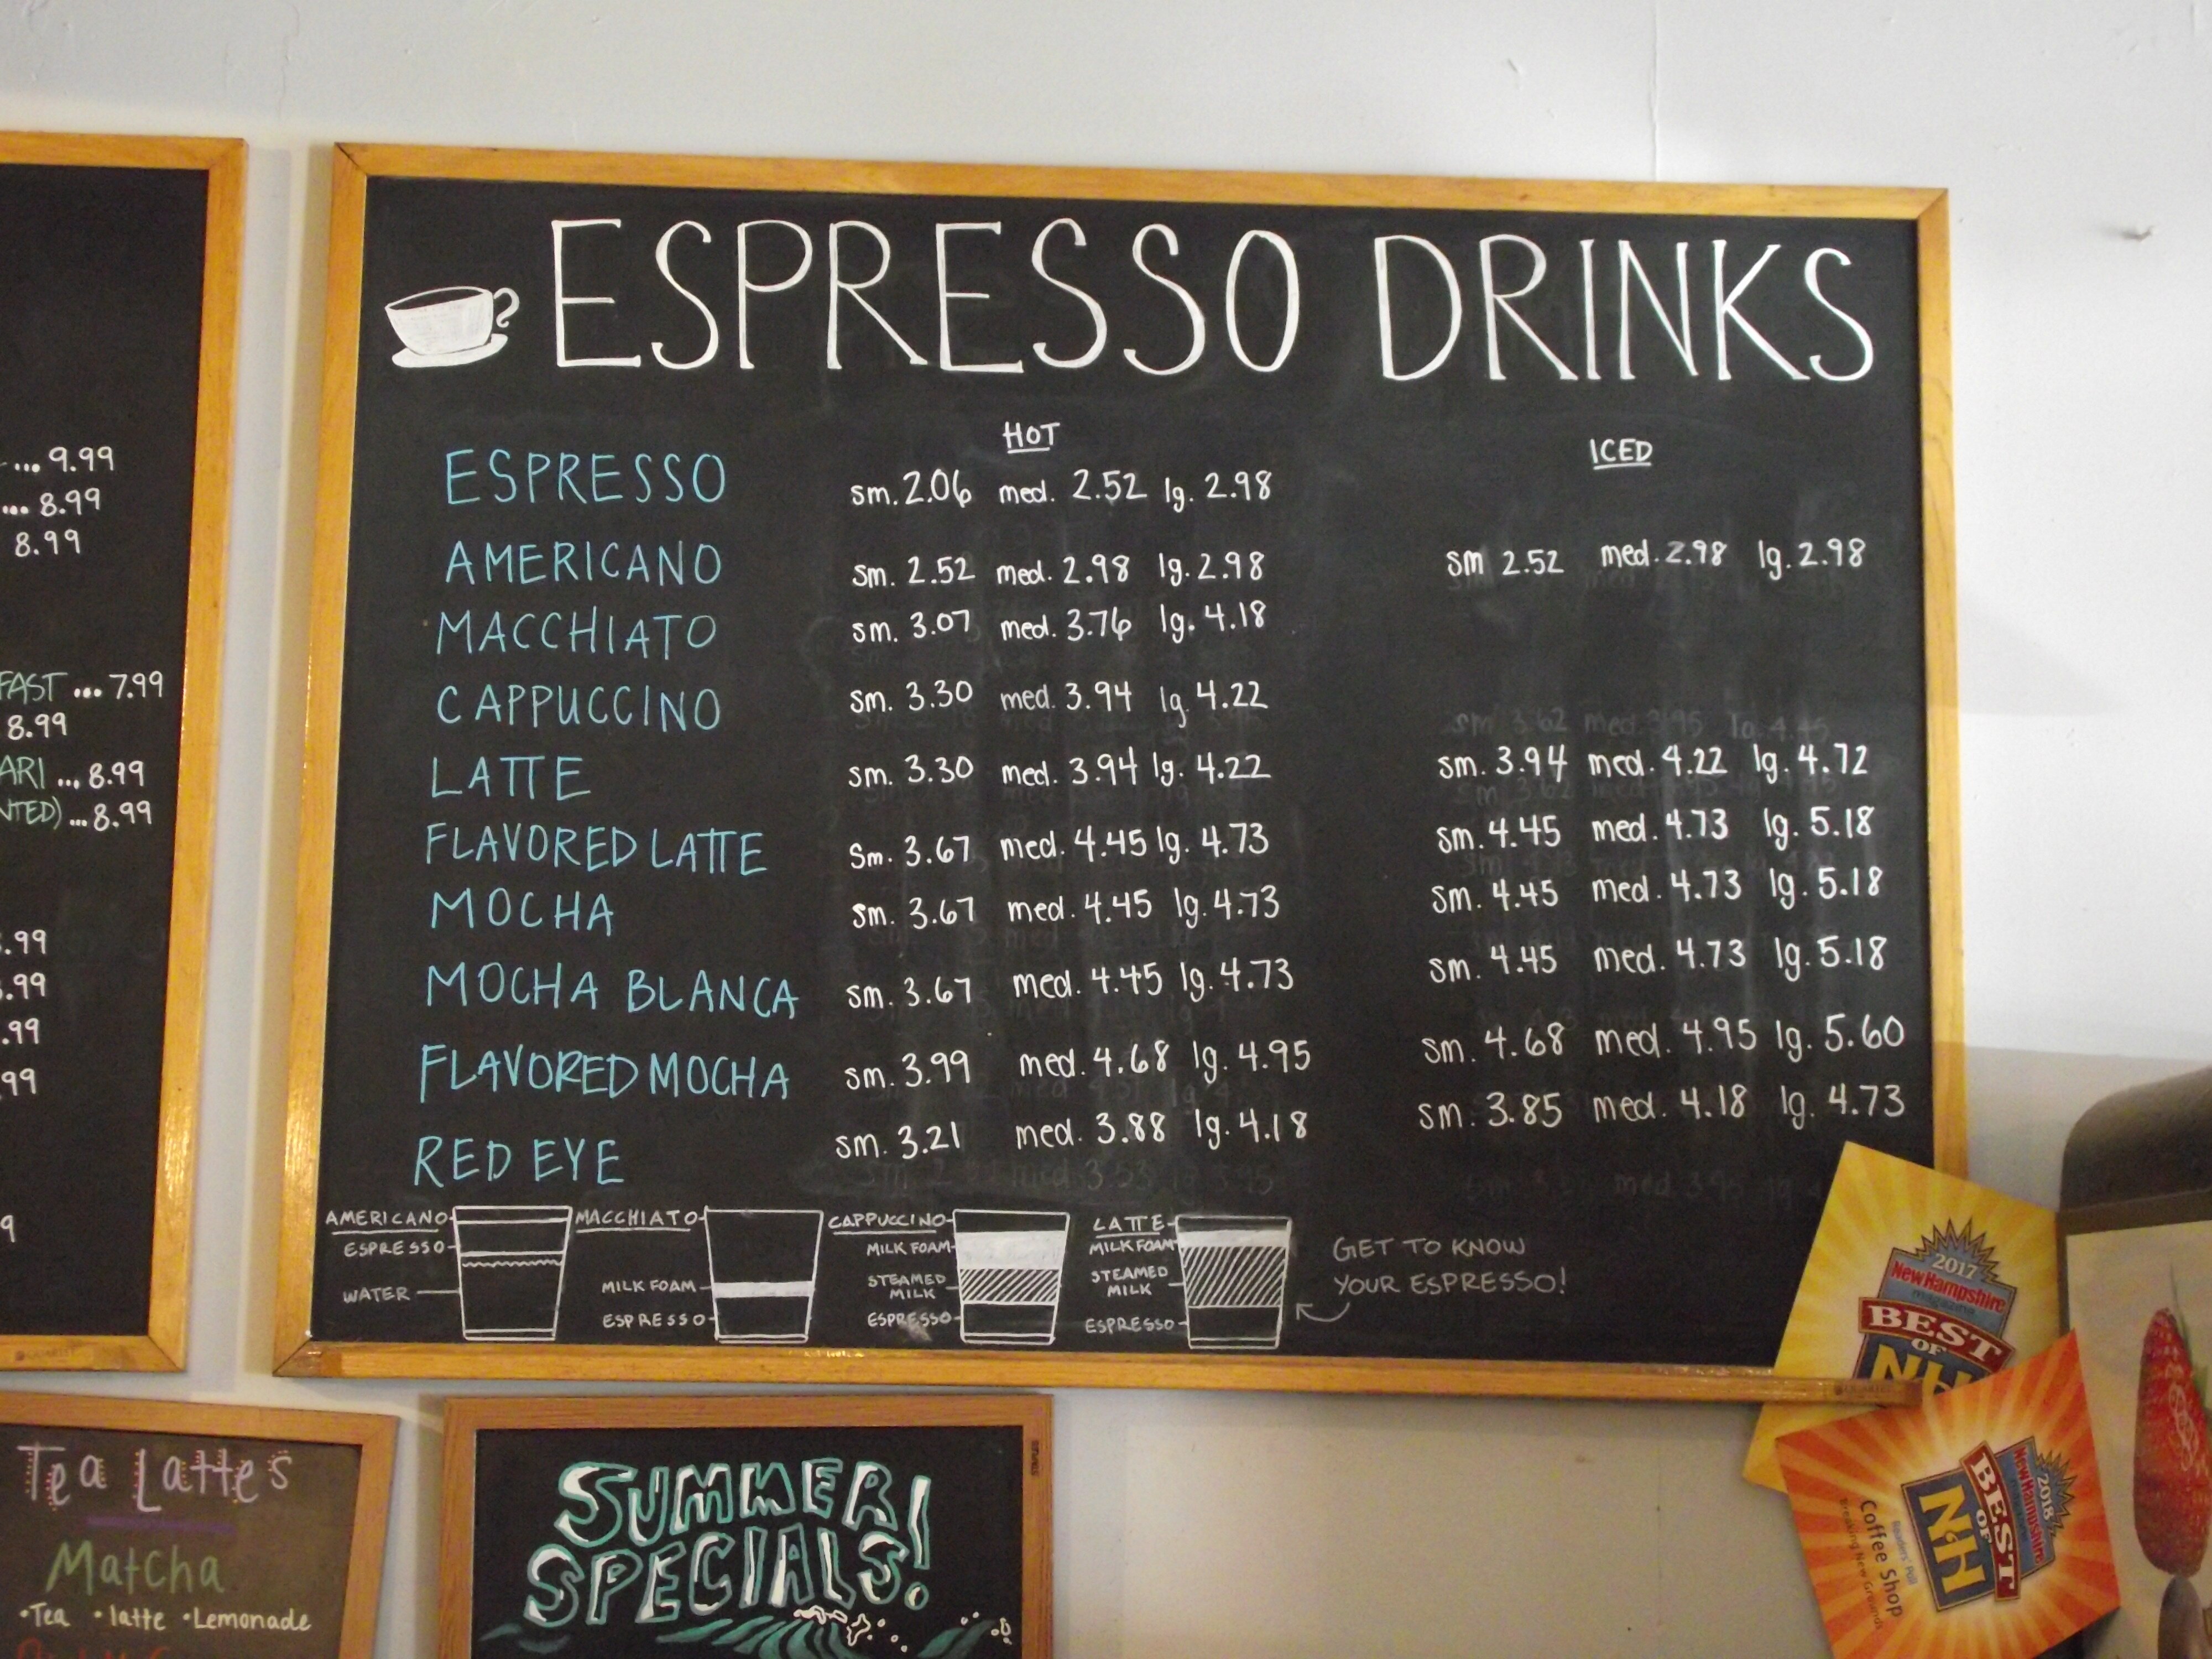 ESPRESSO DRINKS
HOT
ICED
ESPRESSO sm. 2.06 med. 2.52 lg. 2.98
AMERICANO sm. 2.52 med. 2.98 lg. 2.98 sm 2.52 med. 2.98 lg. 2.98
MACCHIATO sm. 3.07 med. 3.76 lg. 4.18
CAPPUCCINO sm. 3.30 med. 3.94 lg. 4.22
LATTE sm. 3.30 med. 3.94 lg. 4.22 sm. 3.94 med. 4.22 lg. 4.72
FLAVORED LATTE sm. 3.67 med. 4.45 lg. 4.73 sm. 4.45 med. 4.73 lg. 5.18
MOCHA sm. 3.67 med. 4.45 lg. 4.73 sm. 4.45 med. 4.73 lg. 5.18
MOCHA BLANCA sm. 3.67 med. 4.45 lg. 4.73 sm. 4.45 med. 4.73 lg. 5.18
FLAVORED MOCHA sm. 3.99 med. 4.68 lg. 4.95 sm. 4.68 med. 4.95 lg. 5.60
RED EYE sm. 3.21 med. 3.88 lg. 4.18 sm. 3.85 med. 4.18 lg. 4.73
AMERICANO
ESPRESSO
WATER
MACCHIATO
MILK FOAM
ESPRESSO
CAPPUCCINO
MILK FOAM
STEAMED
MILK
ESPRESSO
LATTE
MILK FOAM
STEAMED
MILK
ESPRESSO
GET TO KNOW
YOUR ESPRESSO!
... 9.99
... 8.99
8.99
FAST ... 7.99
8.99
ARI ... 8.99
NTED) ... 8.99
.99
.99
.99
99
9
Tea Latte's
Matcha
•Tea •latte •Lemonade
SUMMER
SPECIALS!
2017
New Hampshire
magazine
BEST
OF
NH
2018
New Hampshire
BEST
OF
NH
Readers' Poll
Coffee Shop
Breaking New Grounds